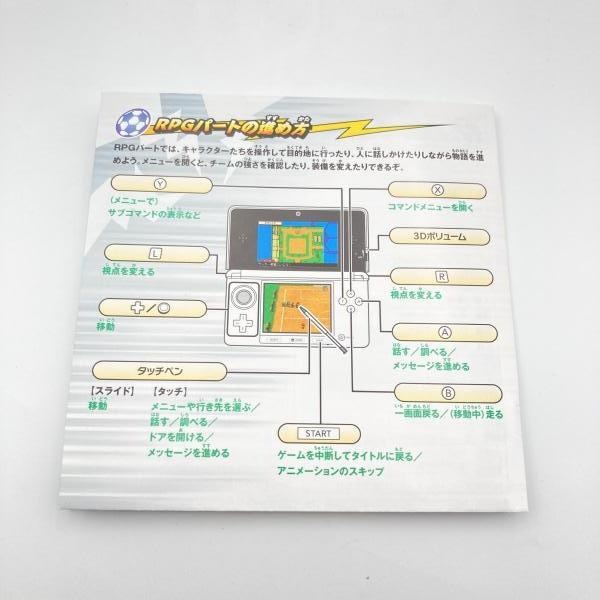 RPGパートの進め方
RPGパートでは、キャラクターたちを操作して目的地に行ったり、人に話しかけたりしながら物語を進
めよう。メニューを開くと、チームの強さを確認したり、装備を変えたりできるぞ。
Y
(メニューで)
サブコマンドの表示など
X
コマンドメニューを開く
3Dボリューム
L
視点を変える
R
視点を変える
+/○
移動
A
話す/調べる/
メッセージを進める
タッチペン
【スライド】 【タッチ】
移動
メニューや行き先を選ぶ/
話す/調べる/
ドアを開ける/
メッセージを進める
B
一画面戻る/(移動中)走る
START
ゲームを中断してタイトルに戻る/
アニメーションのスキップ